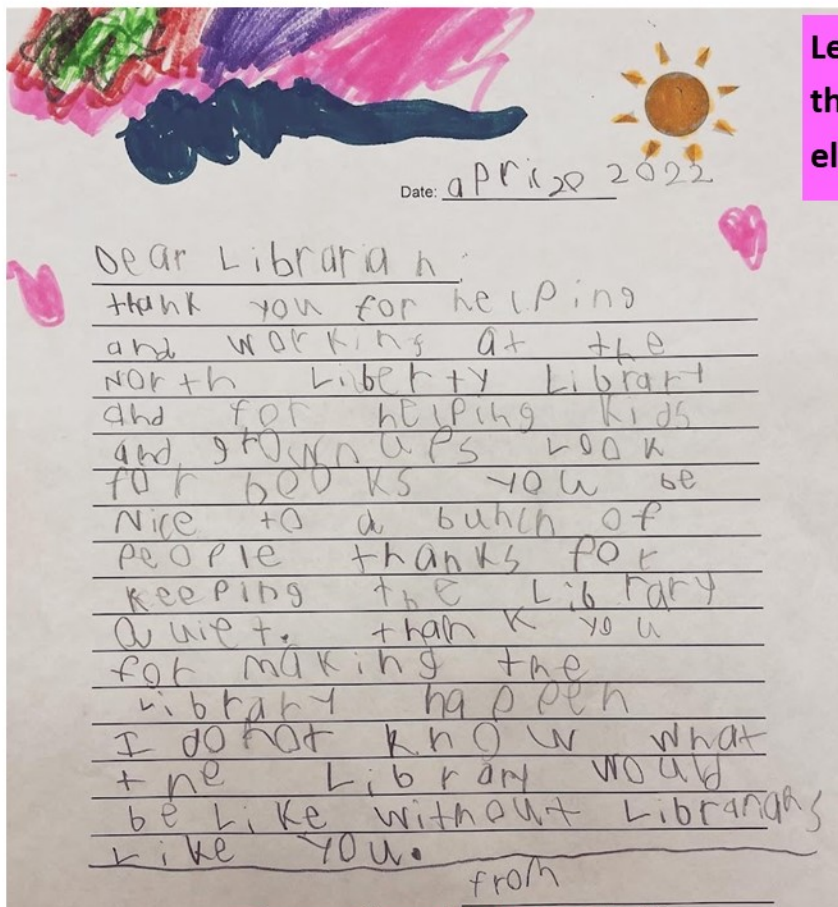 Le
th
el
Date: april 20 2022
Dear Librarian
thank you for helping
and working at the
North Liberty Library
and for helping kids
and grown ups Look
for books you be
Nice to a bunch of
people thanks for
keeping the Library
Quiet. thank you
for making the
Library happen
I do not know what
the Library would
be Like without Librarians
Like you.
from